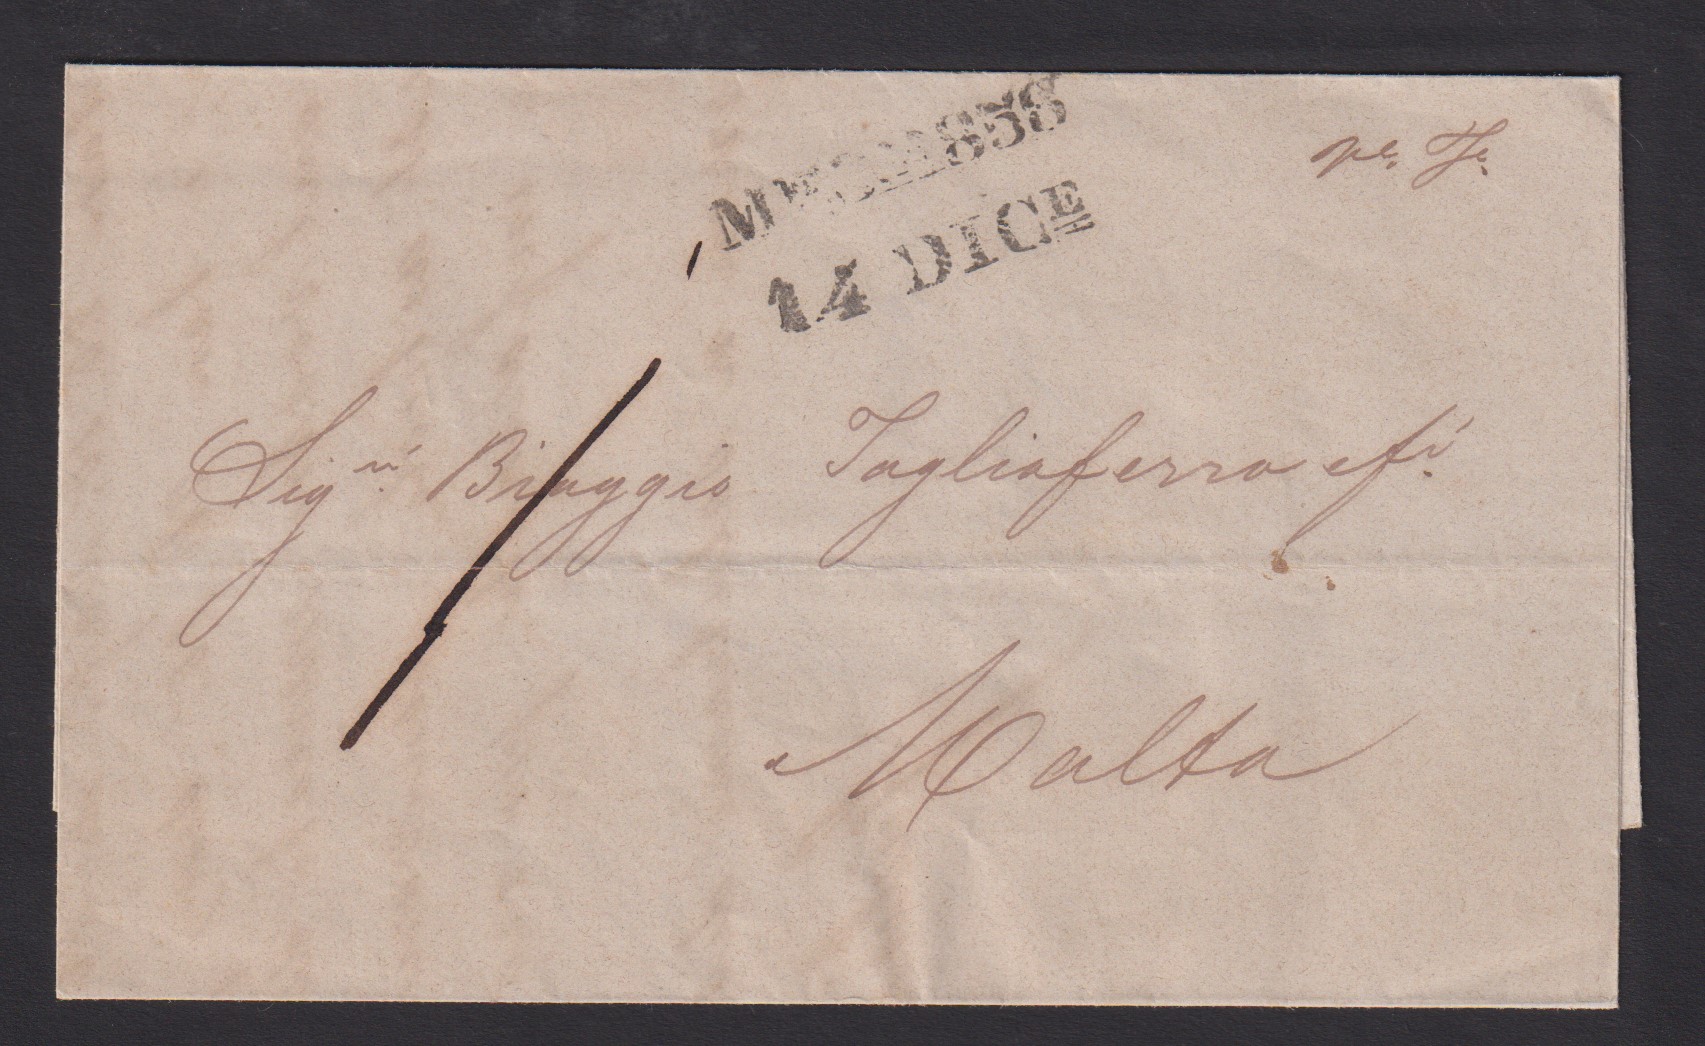 1858
14 DICE
pr.
Sigri Biaggio Tagliaferro e fi
Malta